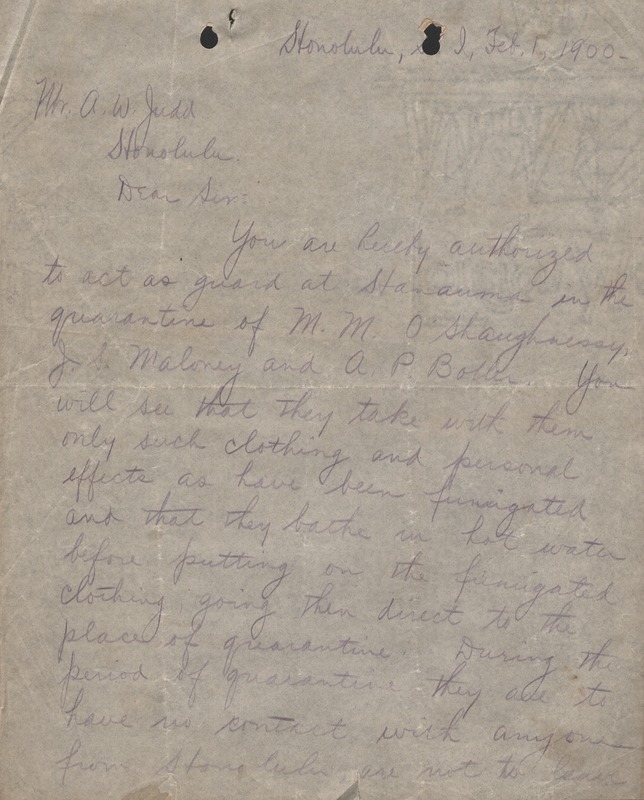 Honolulu, I, Feb. 1, 1900-
Mr. A. W. Judd
Honolulu.
Dear Sir:
You are hereby authorized
to act as guard at Hanauma in the
quarantine of M. M. O'Shaughnessy,
J. S. Maloney and A. P. You
will see that they take with them
only such clothing and personal
effects as have been fumigated
and that they bathe in hot water
before putting on the fumigated
clothing, going then direct to the
place of quarantine. During the
period of quarantine they are to
have no contact with anyone
from Honolulu, are not to leave